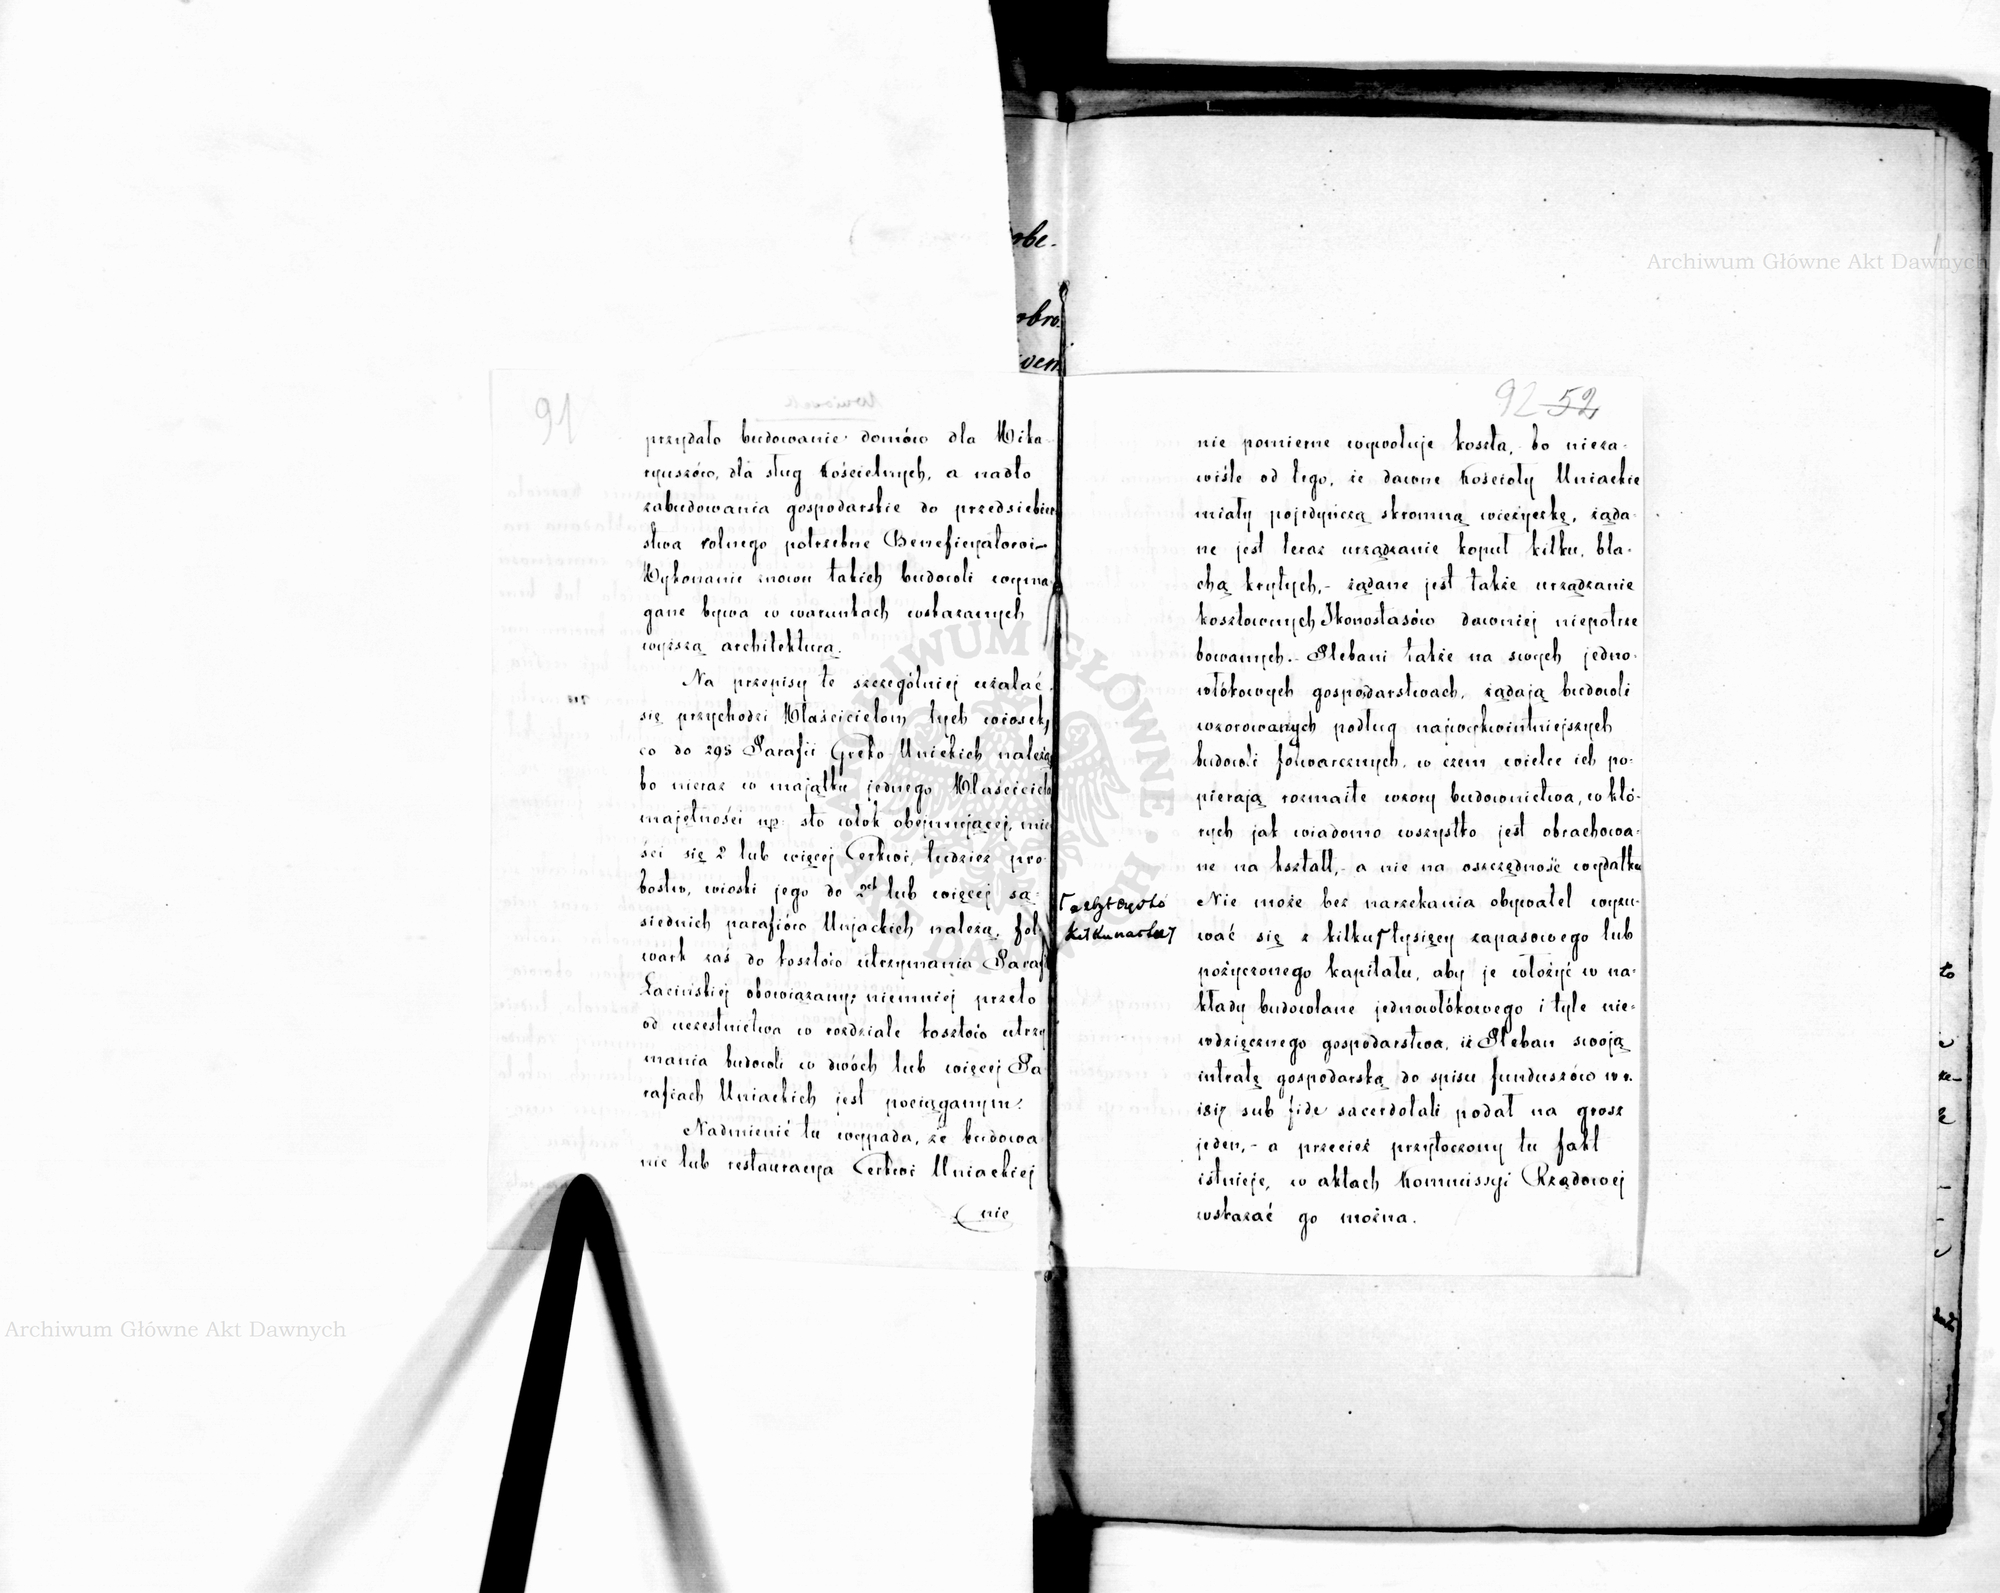 91
przydało budowanie domów dla Wika-
ryuszów, dla sług kościelnych, a nadto
zabudowania gospodarskie do przedsiębier
stwa rolnego potrzebne Beneficyatowi –
Wykonanie znowu takich budowli wyma-
gane bywa w warunkach wskazanych
wyższą architekturą.
Na przepisy te szczególniej użalać
się przychodzi Właścicielom tych wiosek,
co do 295 Parafii Greko Unickich należą
bo nieraz w majątku jednego Właściciela
majętności np. sto włók obejmującej, mie
ści się 2 lub więcej Cerkwi, tudzież pro-
bostw, wioski jego do 2ch lub więcej są-
siednich parafiów Unjackich należą, fol-
wark zaś do kosztów utrzymania Parafii
Łacińskiej obowiązany; niemniej przeto
od uczestnictwa w rozdziale kosztów utrzy
mania budowli w dwóch lub więcej Pa-
rafiach Uniackich jest pociąganym.
Nadmienić tu wypada, że budowa
nie lub restauracya Cerkwi Uniackiej
nie
92 52
nie pomierne wywołuje koszta, bo nieza-
wiśle od tego, że dawne Kościoły Uniackie
miały pojedyńczą skromną wieżyczkę, żąda-
ne jest teraz urządzanie kopuł kilku, bla-
chą krytych, – żądane jest także urządzanie
kosztownych Ikonostasów dawniej niepotrze
bowanych. – Plebani także na swych jedno-
włókowych gospodarstwach, żądają budowli
wzorowanych podług najwykwintniejszych
budowli folwarcznych, w czem wielce ich po-
pierają rozmaite wzory budownictwa, w któ-
rych jak wiadomo wszystko jest obrachowa-
ne na kształt, – a nie na oszczędność wydatku
Nie może bez narzekania obywatel wyzu-
wać się z kilku tysięcy zapasowego lub
pożyczonego kapitału, aby je włożyć w na-
kłady budowlane jednowłókowego i tyle nie-
wdzięcznego gospodarstwa, iż Pleban swoją
intratę gospodarską do spisu funduszów w r.
1817 sub fide sacerdotali podał na grosz
jeden, – a przecież przytoczony tu fakt
istnieje, w aktach Kommissyi Rządowej
wskazać go można.
Archiwum Główne Akt Dawnych
Archiwum Główne Akt Dawnych
ARCHIWUM GŁÓWNE AKT DAWNYCH